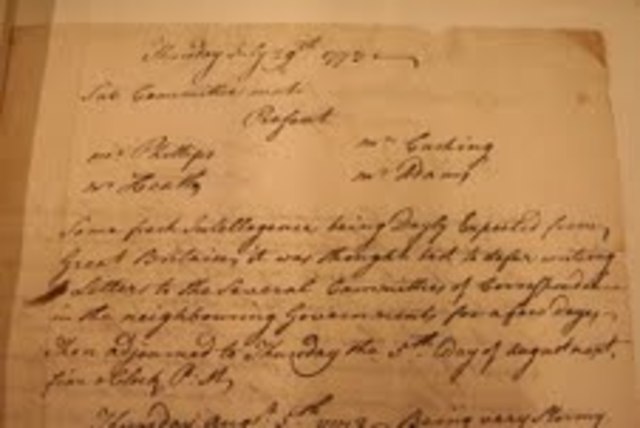 Thursday July 29th 1773
Sub Committee met
Present
mr Phillips mr Cushing
mr Heath mr Adams
Some fresh Intelligence being Dayly Expected from
Great Britain, it was thought best to defer writing
Letters to the Several Committees of Correspondence
in the neighbouring Governments for a few days,
then adjourned to Thursday the 5th Day of august next,
five oClock P.M,
Thursday Augt. 5th 1773 Being very Stormy